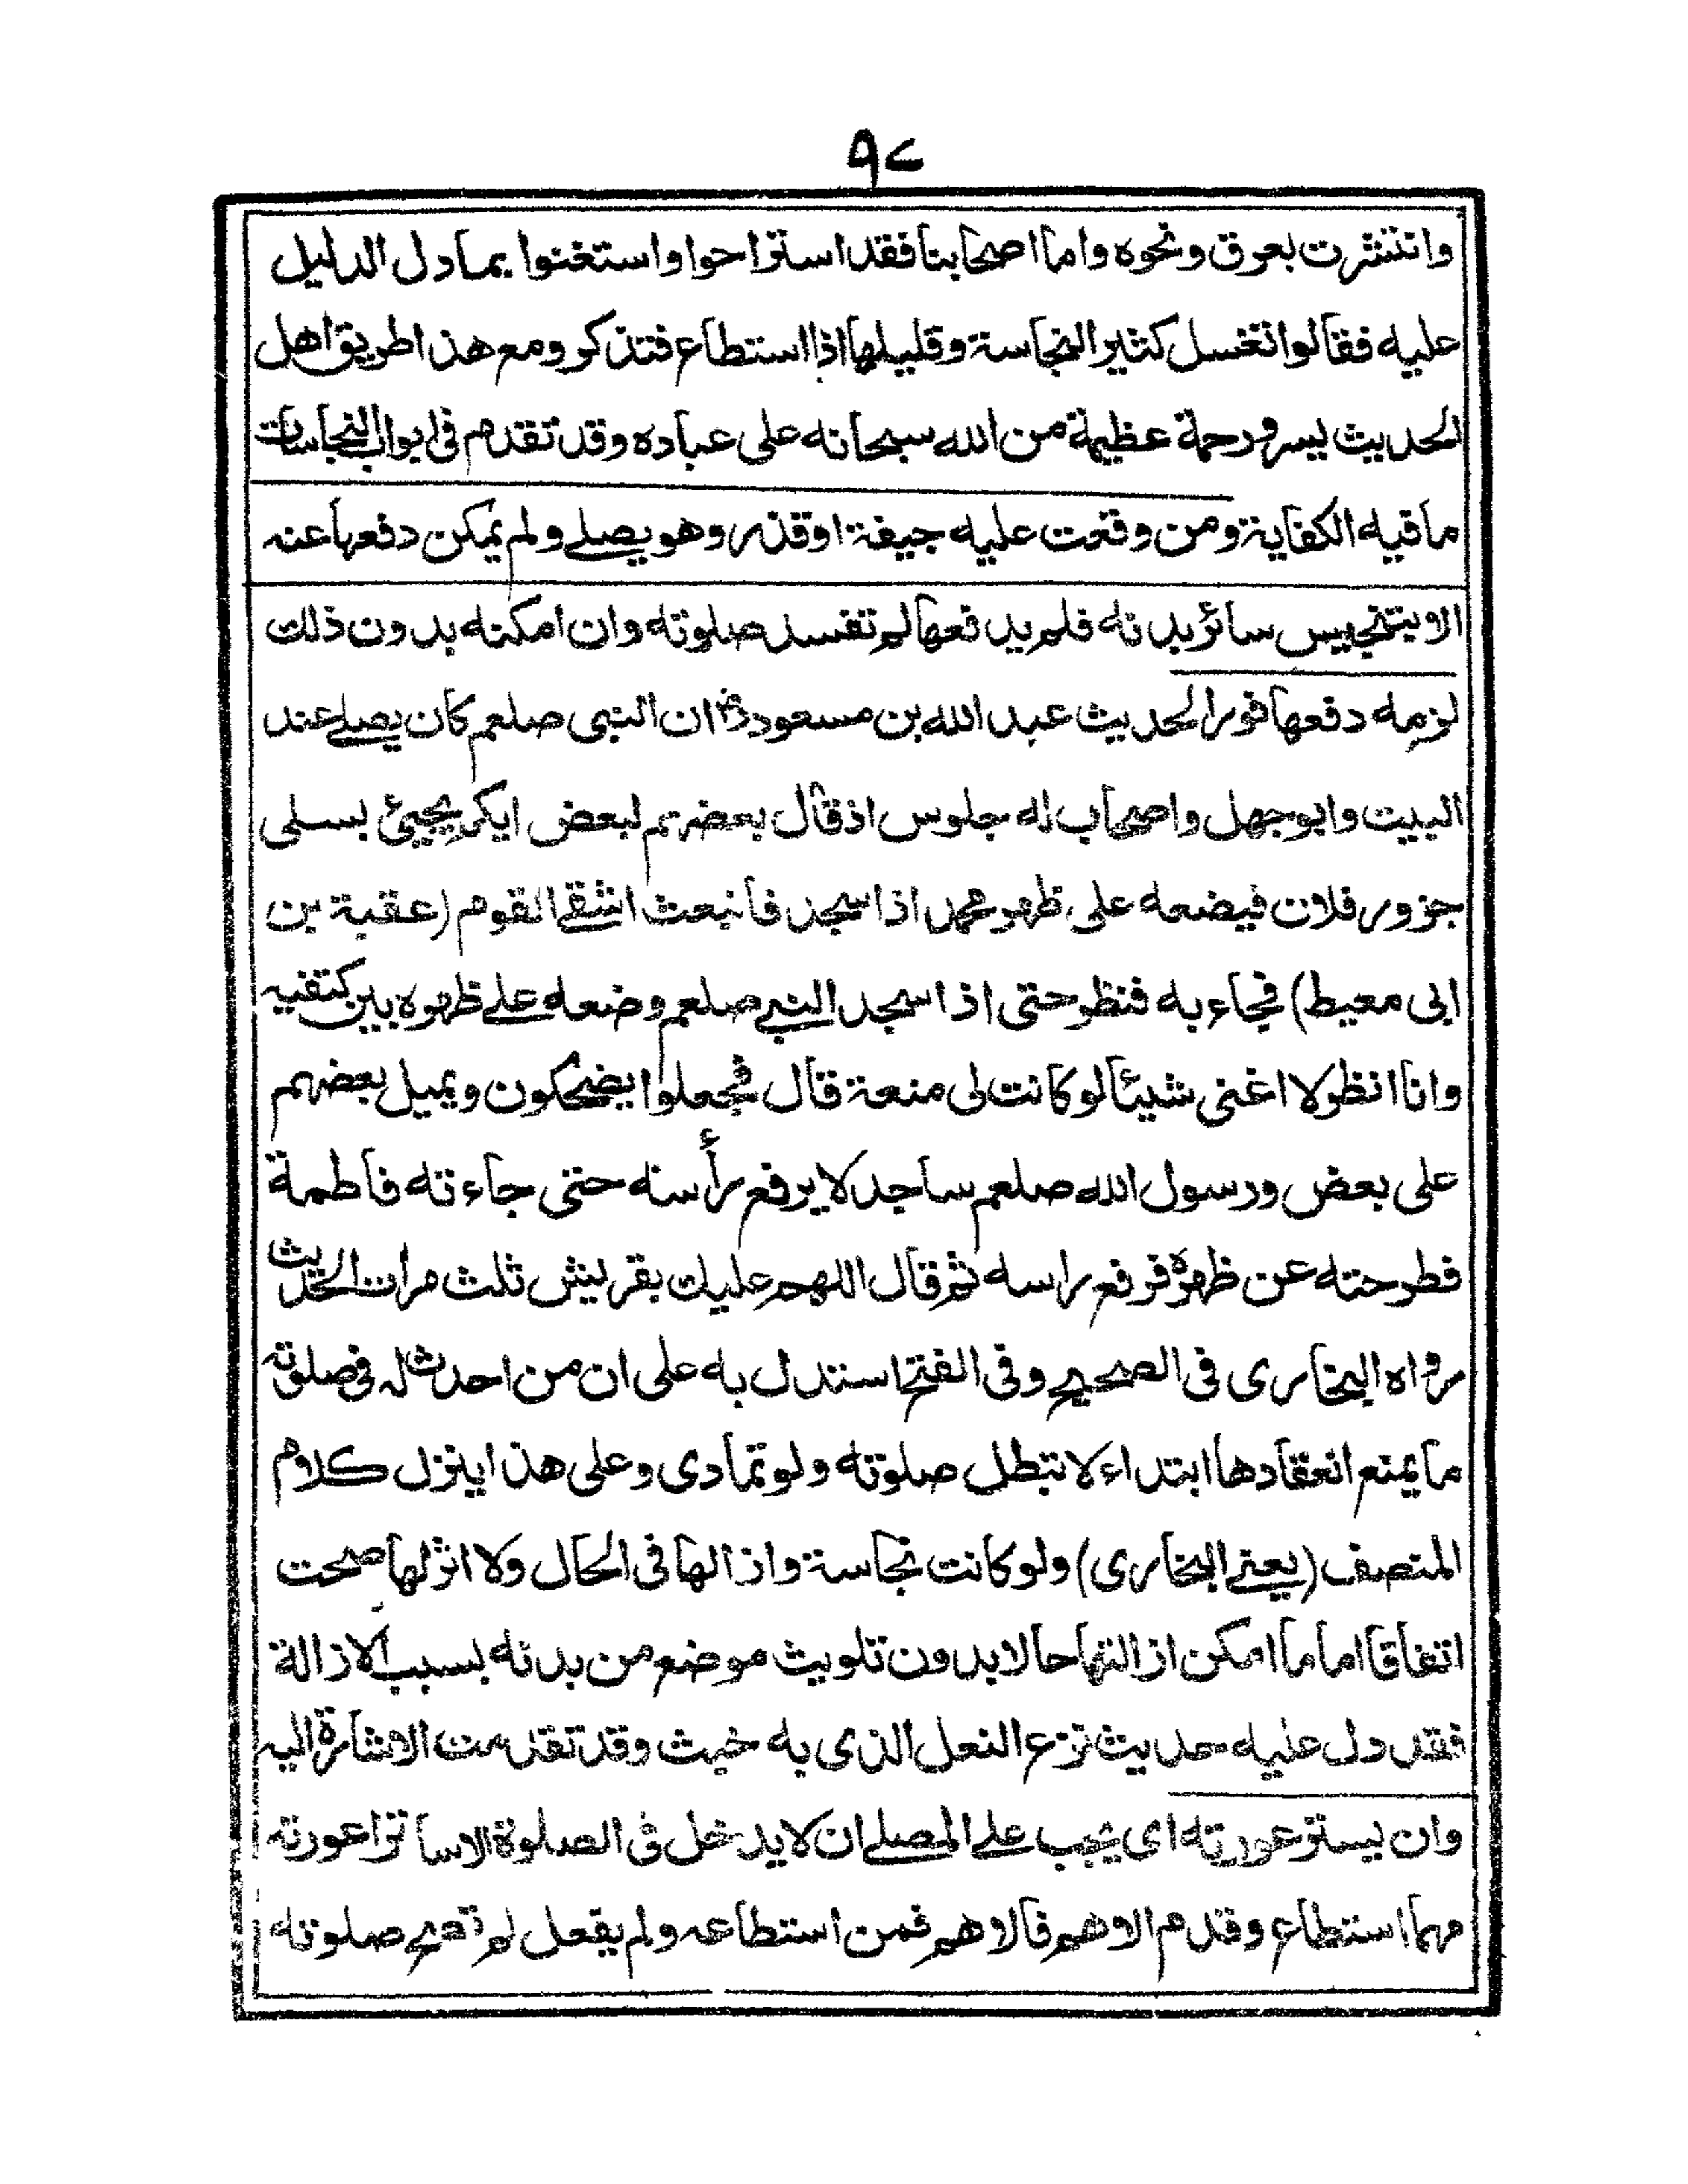 ٩٨
وانتشرت بعرق ونحوه واما اصحابنا فقد استراحوا واستغنوا بما دل الدليل
عليه فقالوا تغسل كثير النجاسة وقليلها اذا استطاع فتذكر ومع هذا طريق اهل
الحديث يسر ورحمة عظيمة من الله سبحانه على عباده وقد تقدم فى ابواب النجاسات
ما فيه الكفاية ومن وقعت عليه جيفة او قذر وهو يصلے ولم يمكن دفعها عنه
الا بتنجيس سائر بدنه فلم يدفعها لم تفسد صلوته وان امكنه بدون ذلك
لزمه دفعها فورا لحديث عبد الله بن مسعود رضـ ان النبى صلعم كان يصلے عند
البيت وابو جهل واصحاب له جلوس اذ قال بعضهم لبعض ايكم يجيئ بسلى
جزور فلان فيضعه على ظهر محمد اذا سجد فانبعث اشقے القوم (عقبة بن
ابى معيط) فجاء به فنظر حتى اذا سجد النبے صلعم وضعه علے ظهره بين كتفيه
وانا انظر لا اغنى شيئا لو كانت لى منعة قال فجعلوا يضحكون ويميل بعضهم
على بعض ورسول الله صلعم ساجد لا يرفع رأسه حتى جاءته فاطمة
فطرحته عن ظهره فرفع راسه ثم قال اللهم عليك بقريش ثلث مرات الحديث
رواه البخارى فى الصحيح وفى الفتح استدل به على ان من احدث له فى صلوته
ما يمنع انعقادها ابتداء لا تبطل صلوته ولو تمادى وعلى هذا ينزل كلام
المنصف (يعنے البخارى) ولو كانت نجاسة وازالها فى الحال ولا اثر لها صحت
اتفاقا اما ما امكن ازالتها حالا بدون تلويث موضع من بدنه بسبب الازالة
فقد دل عليه حديث نزع النعل الذى به خبث وقد تقدمت الاشارة اليه
وان يستر عورته اى يجب علے المصلے ان لا يدخل فى الصلوة الا ساترا عورته
مهما استطاع وقدم الاهم فالاهم فمن استطاعه ولم يفعل لم تصح صلوته